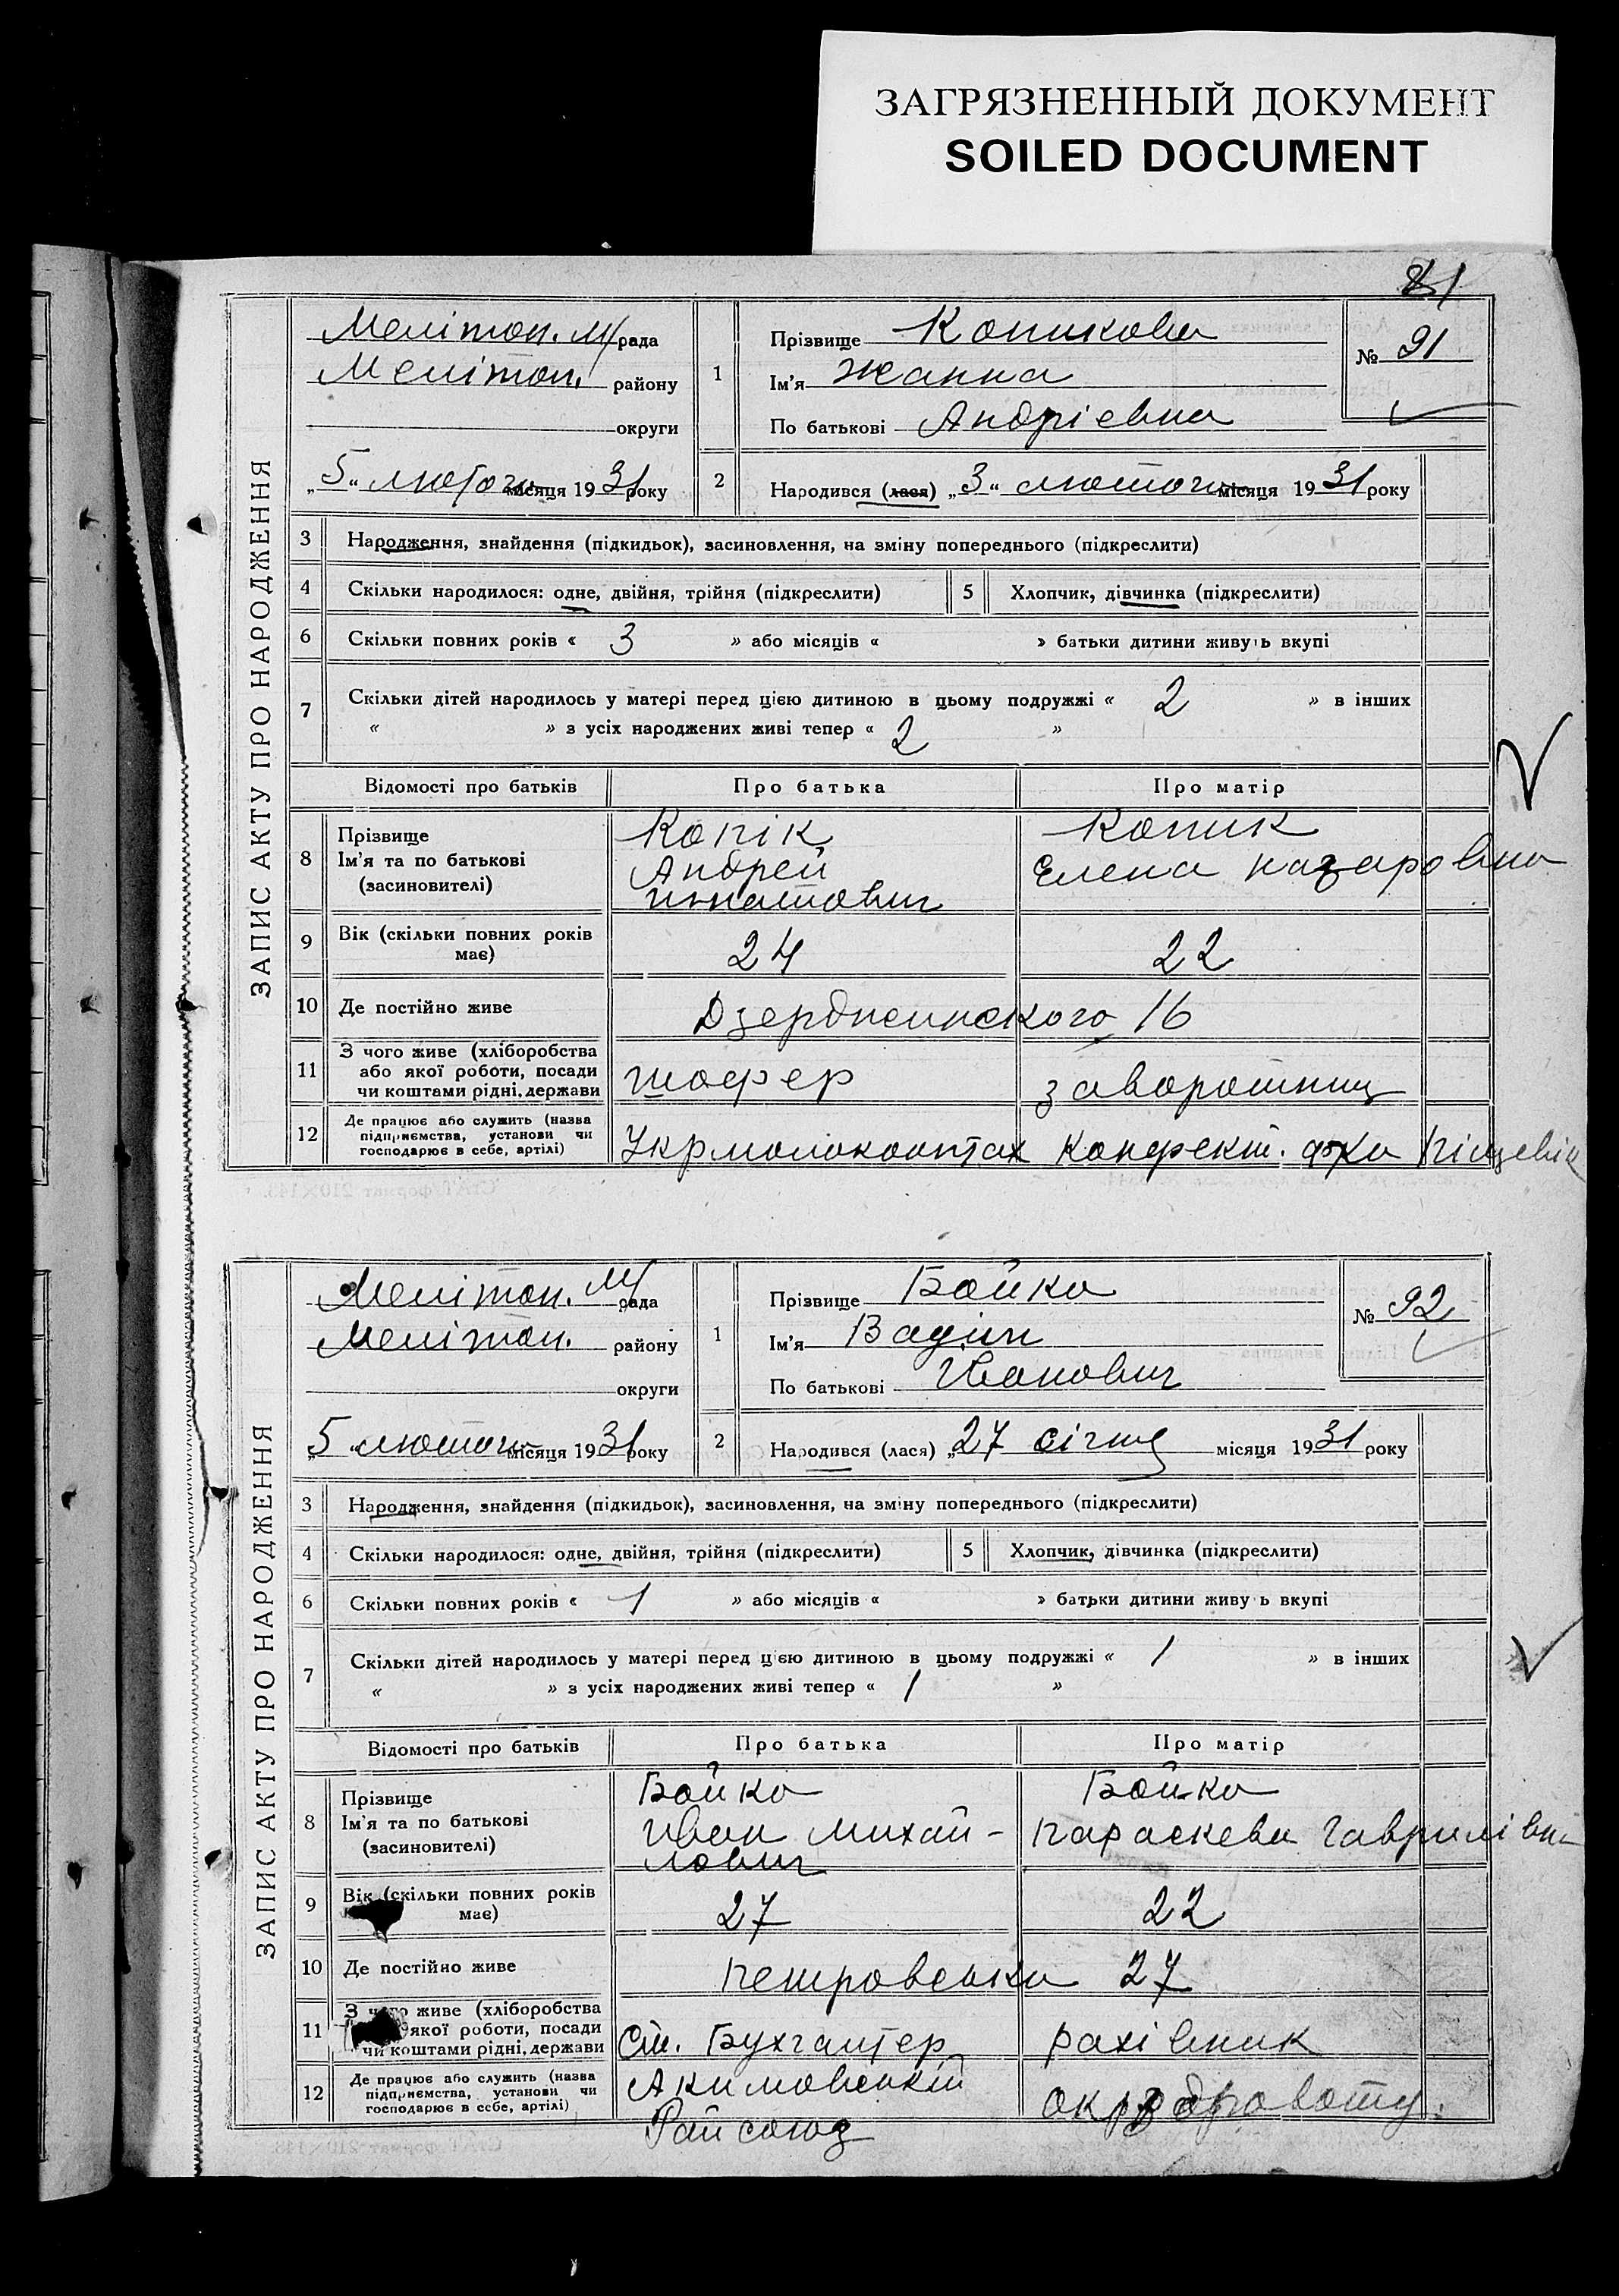 ЗАГРЯЗНЕННЫЙ ДОКУМЕНТ
SOILED DOCUMENT
81
ЗАПИС АКТУ ПРО НАРОДЖЕННЯ
Мелітоп. М/рада
Мелітоп. району
округи
„5“ лютого місяця 1931 року
1
Прізвище Копикова
Ім'я Жанна
По батькові Андріевна
№ 91
2
Народився (лася) „3“ лютого місяця 1931 року
3 Народження, знайдення (підкидьок), засиновлення, на зміну попереднього (підкреслити)
4 Скільки народилося: одне, двійня, трійня (підкреслити) 5 Хлопчик, дівчинка (підкреслити)
6 Скільки повних років « 3 » або місяців « » батьки дитини живуть вкупі
7 Скільки дітей народилось у матері перед цією дитиною в цьому подружжі « 2 » в інших
« » з усіх народжених живі тепер « 2 »
Відомості про батьків Про батька Про матір
8 Прізвище Копік Копик
Ім'я та по батькові Андрей Елена Назаровна
(засиновителі) Игнатович
9 Вік (скільки повних років має) 24 22
10 Де постійно живе Дзержинского 16
11 З чого живе (хліборобства
або якої роботи, посади
чи коштами рідні, держави шофер заворотниц
12 Де працює або служить (назва
підприємства, установи чи
господарює в себе, артілі) Конфект. ф-ка Піщевік
ЗАПИС АКТУ ПРО НАРОДЖЕННЯ
Мелітоп. М/рада
Мелітоп. району
округи
„5“ лютого місяця 1931 року
1
Прізвище Бойко
Ім'я Вадім
По батькові Иванович
№ 92
2
Народився (лася) „27 січня місяця 1931 року
3 Народження, знайдення (підкидьок), засиновлення, на зміну попереднього (підкреслити)
4 Скільки народилося: одне, двійня, трійня (підкреслити) 5 Хлопчик, дівчинка (підкреслити)
6 Скільки повних років « 1 » або місяців « » батьки дитини живуть вкупі
7 Скільки дітей народилось у матері перед цією дитиною в цьому подружжі « 1 » в інших
« » з усіх народжених живі тепер « 1 »
Відомості про батьків Про батька Про матір
8 Прізвище Бойко Бойко
Ім'я та по батькові Иван Михай- Параскева Гаврилівна
(засиновителі) лович
9 Вік (скільки повних років має) 27 22
10 Де постійно живе Петровська 27
11 З чого живе (хліборобства
якої роботи, посади
чи коштами рідні, держави Ст. Бухгалтер рахівник
12 Де працює або служить (назва
підприємства, установи чи
господарює в себе, артілі) Акимовський
Райсоюз